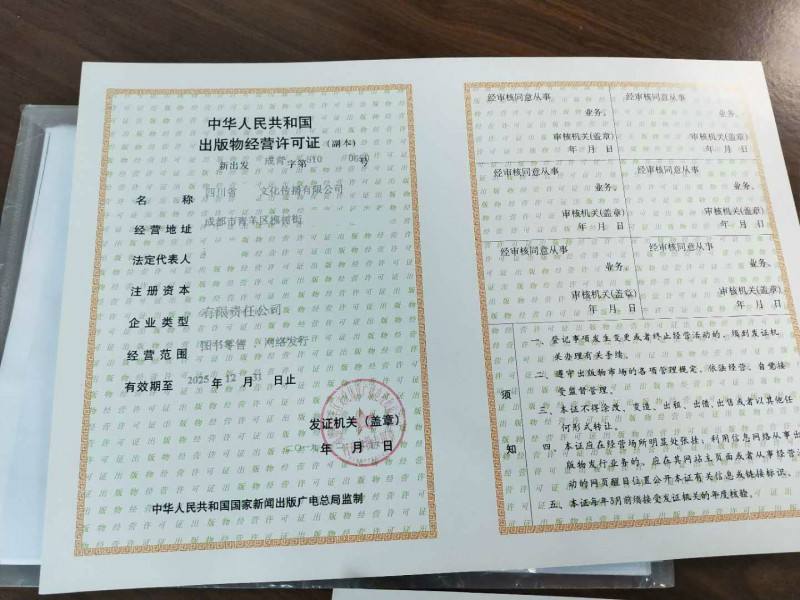 中华人民共和国
出版物经营许可证（副本）
新出发 成青 字第 号
名 称 四川省 文化传播有限公司
经营地址 成都市青羊区 街
法定代表人
注册资本
企业类型 有限责任公司
经营范围 图书零售 、网络发行
有效期至 2025年12月31日止
发证机关（盖章）
年 月 日
中华人民共和国国家新闻出版广电总局监制
经审核同意从事
业务。
审核机关(盖章)
年 月 日
经审核同意从事
业务。
审核机关(盖章)
年 月 日
经审核同意从事
业务。
审核机关(盖章)
年 月 日
经审核同意从事
业务。
审核机关(盖章)
年 月 日
经审核同意从事
业务。
审核机关(盖章)
年 月 日
经审核同意从事
业务。
审核机关(盖章)
年 月 日
须知
一、登记事项发生变更或者终止经营活动的，须到发证机
关办理有关手续。
二、遵守出版物市场的各项管理规定，依法经营，自觉接
受监督管理。
三、本证不得涂改、变造、出租、出借、出售或者以其他任
何形式转让。
四、本证应在经营场所明显处张挂；利用信息网络从事出
版物发行业务的，应在其网站主页面或者从事经营活
动的网页醒目位置公开本证有关信息或链接标识。
五、本证每年3月前须接受发证机关的年度核验。